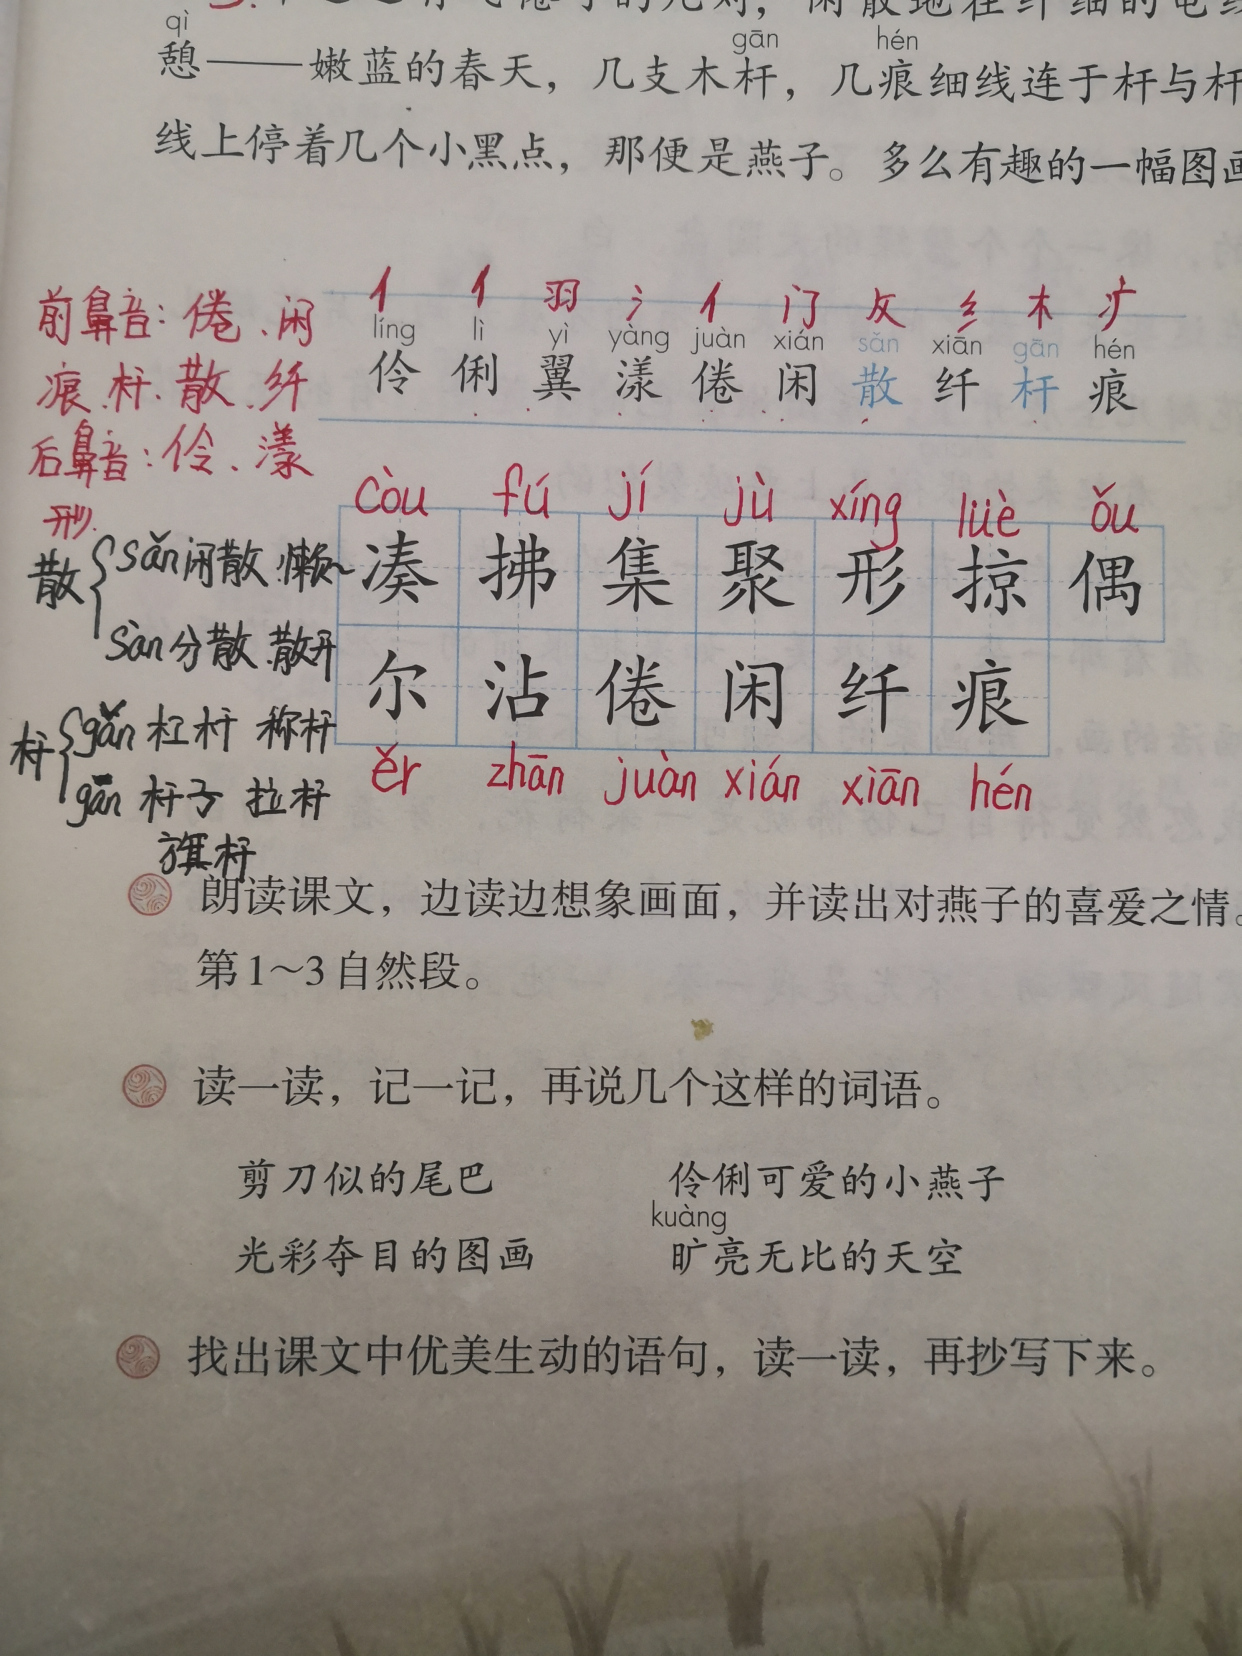 的几对，闲散地在纤细的电线
qì gān hén
憩——嫩蓝的春天，几支木杆，几痕细线连于杆与杆
线上停着几个小黑点，那便是燕子。多么有趣的一幅图画
亻 亻 羽 氵 亻 门 攵 纟 木 疒
líng lì yì yàng juàn xián sǎn xiān gān hén
伶 俐 翼 漾 倦 闲 散 纤 杆 痕
前鼻音：倦、闲
痕、杆、散、纤
后鼻音：伶、漾
形
còu fú jí jù xíng lüè ǒu
凑 拂 集 聚 形 掠 偶
尔 沾 倦 闲 纤 痕
ěr zhān juàn xián xiān hén
散 sǎn 闲散 懒~
sàn 分散 散开
杆 gǎn 杠杆 称杆
gān 杆子 拉杆
旗杆
朗读课文，边读边想象画面，并读出对燕子的喜爱之情。
第1～3自然段。
读一读，记一记，再说几个这样的词语。
剪刀似的尾巴 伶俐可爱的小燕子
kuàng
光彩夺目的图画 旷亮无比的天空
找出课文中优美生动的语句，读一读，再抄写下来。